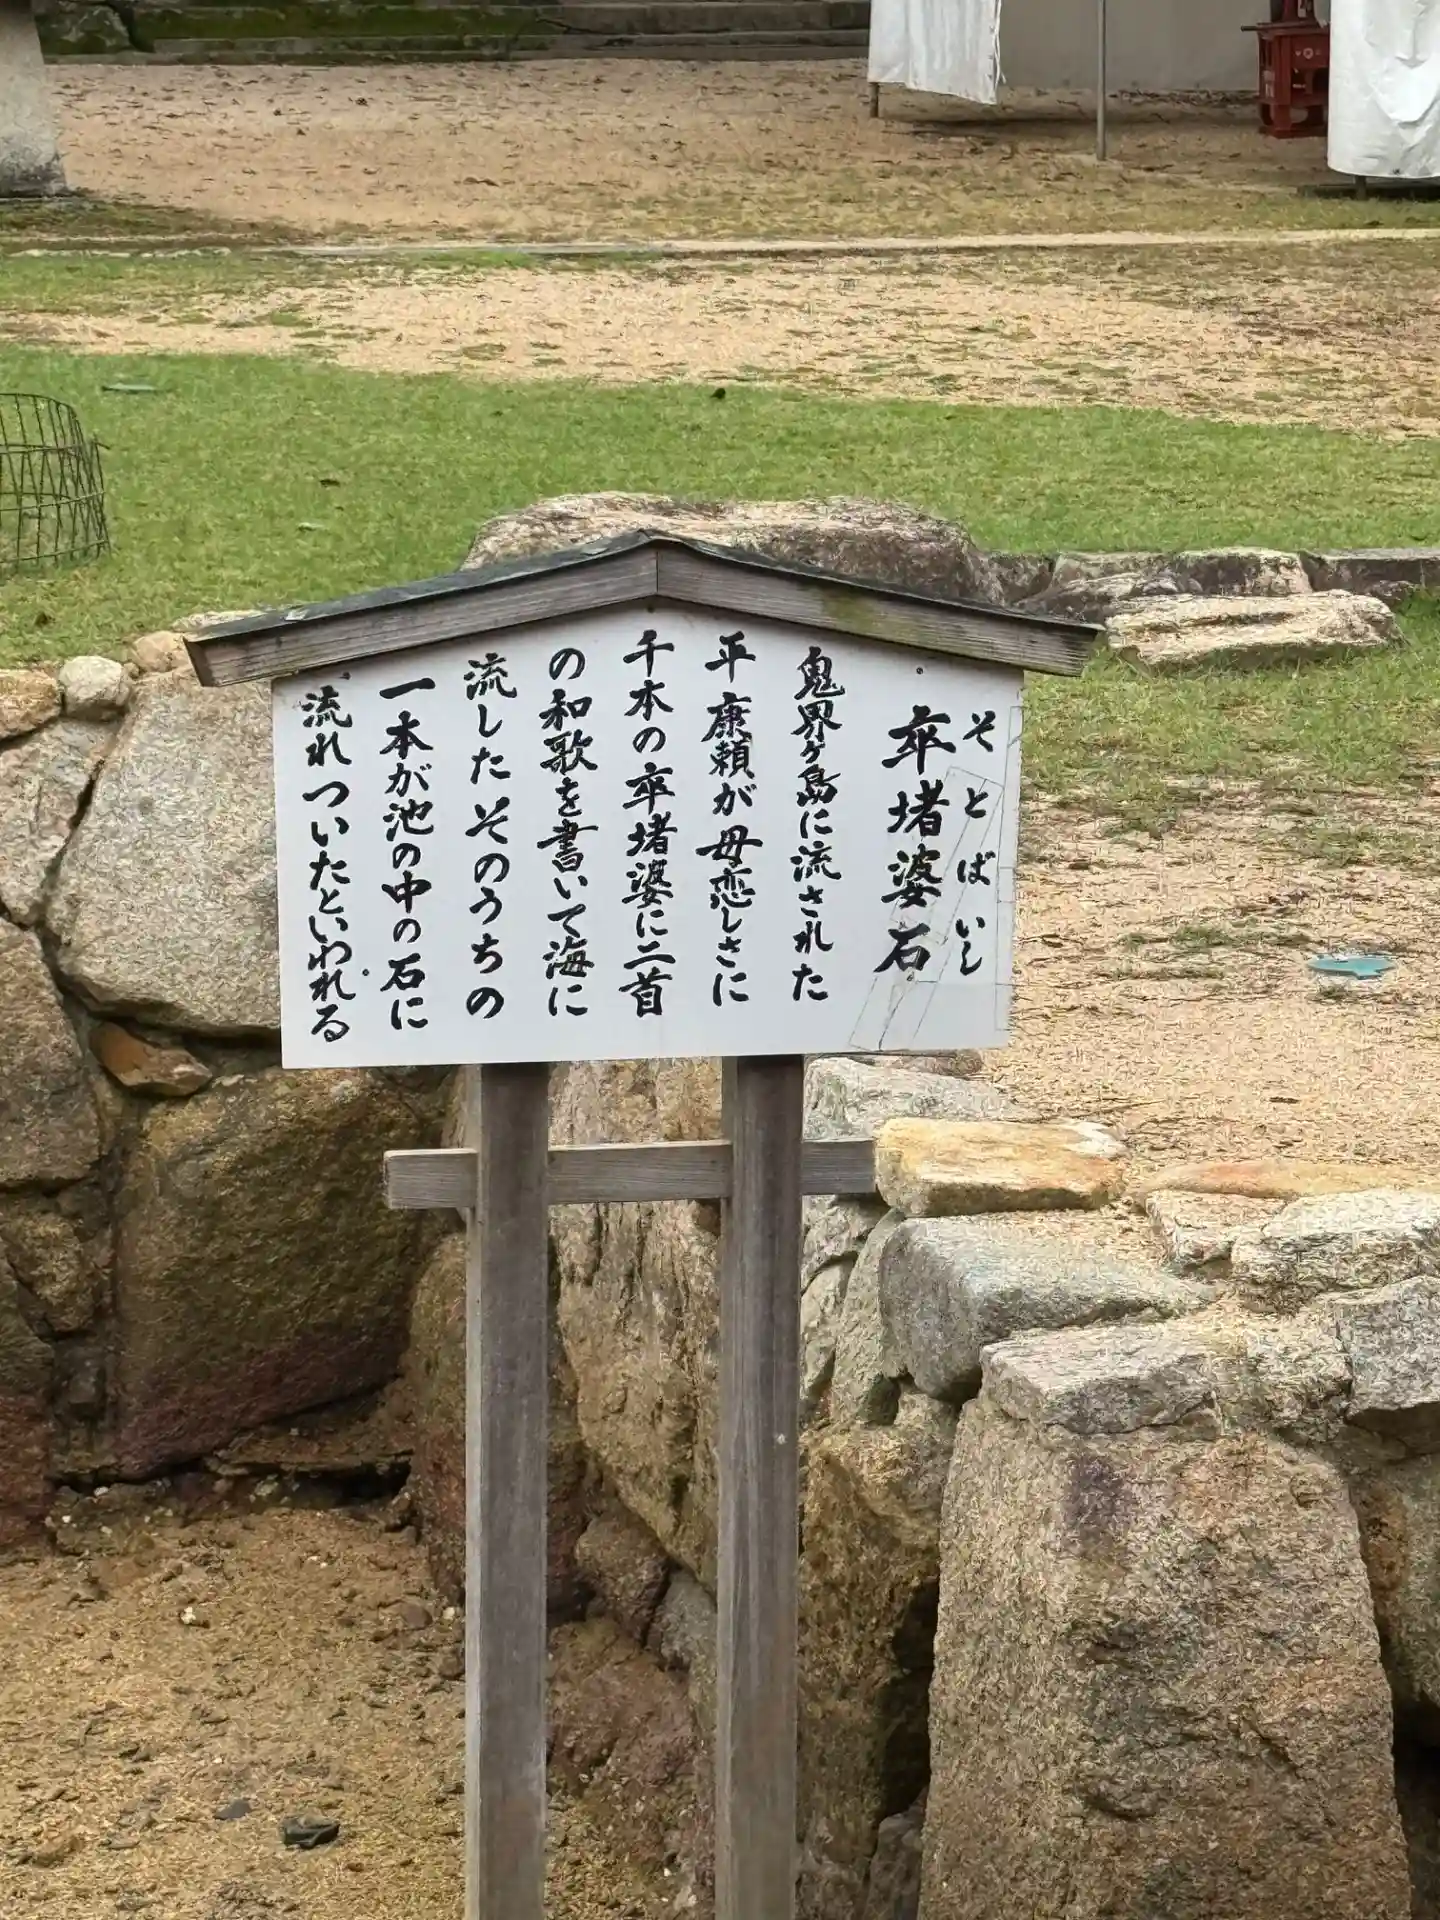 そとばいし
卒堵婆石
鬼界ヶ島に流された
平康頼が母恋しさに
千本の卒堵婆に二首
の和歌を書いて海に
流したそのうちの
一本が池の中の石に
流れついたといわれる。